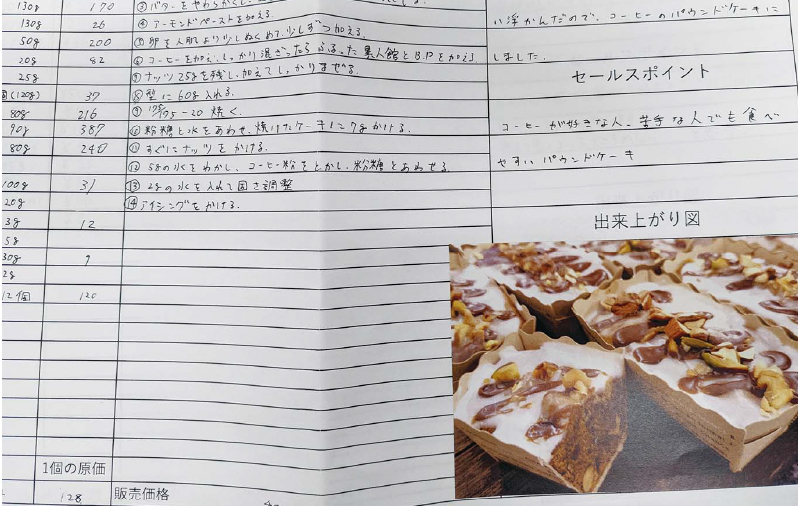 130g 170 ③バターをやわらかくし、
130g 26 ④アーモンドペーストを加える。
50g 200 ⑤卵を人肌より少しぬくめて、少しずつ加える。
20g 82 ⑥コーヒーを加え、しっかり混ざったらふるった とB.Pを加え
25g ⑦ナッツ25gを残し、加えてしっかりまぜる。
(120g) 37 ⑧型に60g入れる。
80g 216 ⑨ 195-20 焼く。
90g 387 ⑩粉糖と水をあわせ、焼けたケーキに7gかける。
80g 240 ⑪すぐにナッツをかける。
⑫58gの水をわかし、コーヒー粉をとかし、粉糖とあわせる。
100g 31 ⑬2gの水を入れて固さ調整
20g ⑭アイシングをかける。
3g 12
5g
30g 9
2g
12個 120
1個の原価
128 販売価格
い浮かんだので、コーヒーのパウンドケーキに
しました。
セールスポイント
コーヒーが好きな人、苦手な人でも食べ
やすいパウンドケーキ
出来上がり図